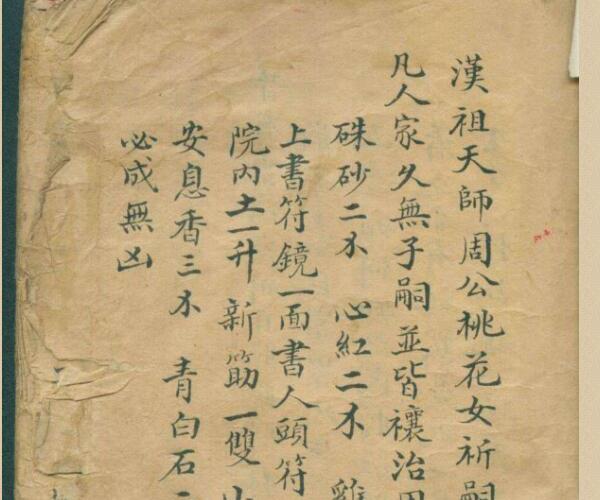 漢祖天師周公桃花女祈嗣
凡人家久無子嗣並皆禳治用
硃砂二不 心紅二不 雞
上書符鏡一面書人頭符
院內土一升 新筯一雙
安息香三不 青白石二
必成無凶